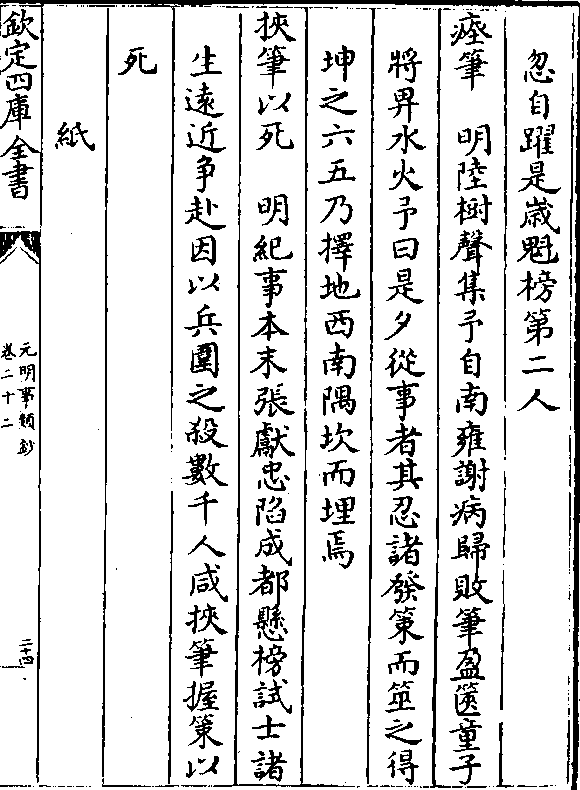 忽自躍是歲魁榜第二人
瘞筆　明陸樹聲集予自南雍謝病歸敗筆盈篋童子
將畀水火予曰是夕從事者其忍諸發策而筮之得
坤之六五乃擇地西南隅坎而埋焉
挾筆以死　明紀事本末張獻忠陷成都懸榜試士諸
生遠近争赴因以兵圍之殺數千人咸挾筆握策以
死
紙
欽定四庫全書
元明事類鈔
卷二十二
二十四